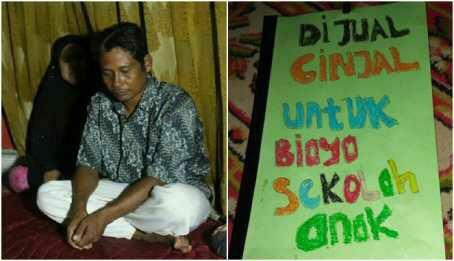 DIJUAL
GINJAL
untuk
Biaya
Sekolah
anak